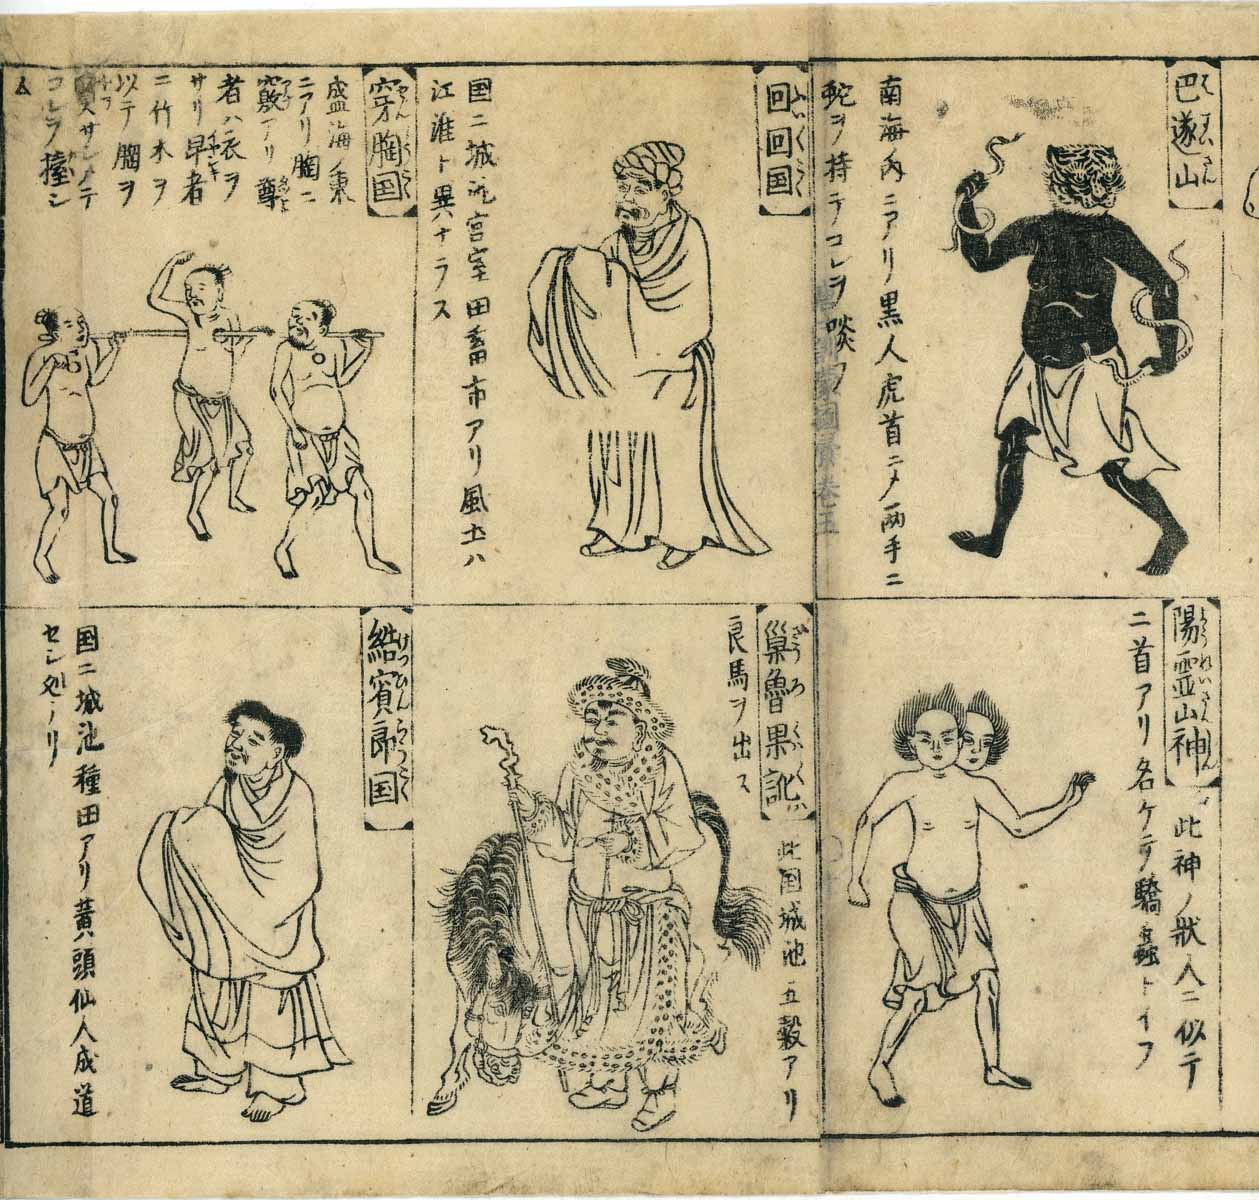 巴遂山
はすいさん
南海ノ内ニアリ黒人虎首ニメ両手ニ
蛇ヲ持テコレヲ啖フ
回回国
国ニ城池宮室田畜市アリ風土ハ
江淮ト異ナラス
穿胸国
盛海ノ東
ニアリ胸ニ
竅アリ尊
者ハ衣ヲ
サリ卑者
ニ竹木ヲ
以テ胸ヲ
コレヲ擡シ
ム
陽霊山神
ようれいさんしん
此神ノ状人ニ似テ
二首アリ名ケテ驕蟲トイフ
巣魯果訛
此国城池五穀アリ
良馬ヲ出ス
国ニ城池種田アリ黄頭仙人成道
セシ処ナリ